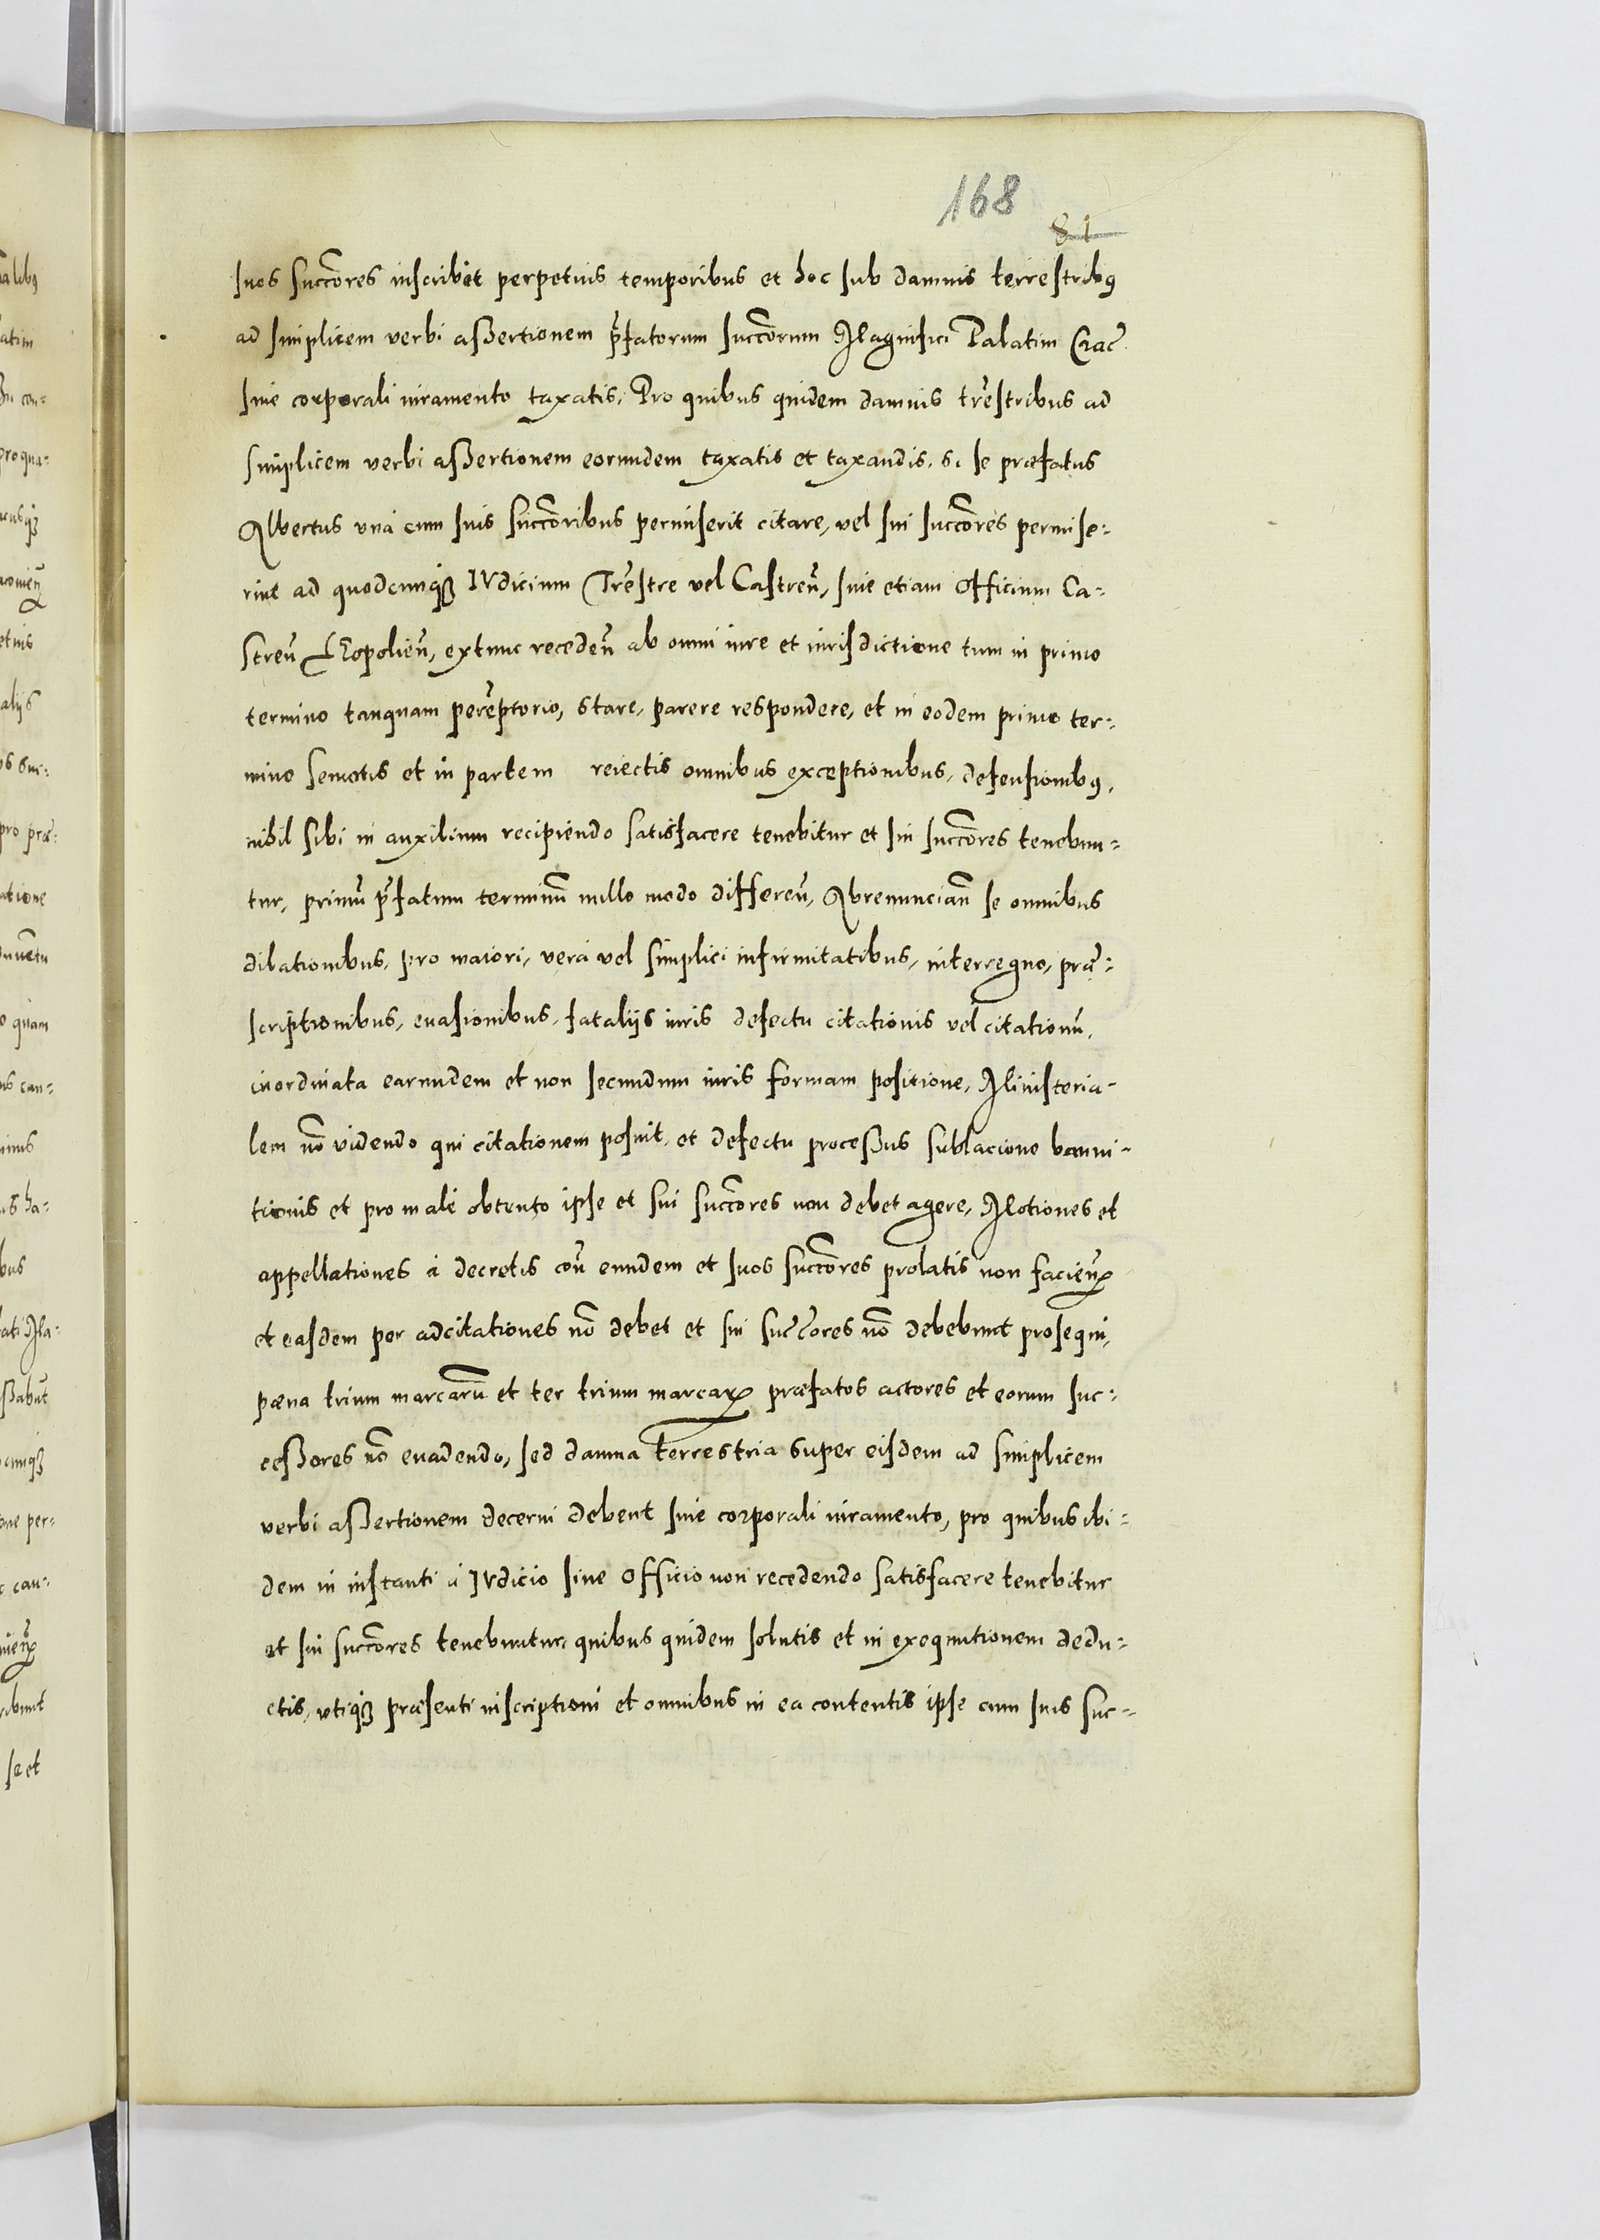 168
81
suos succ̃ores inscribet perpetuis temporibus et hoc sub damnis terrestribꝰ
ad simplicem verbi assertionem p̃fatorum succ̃orum Magnifici Palatini Crac̃
sine corporali iuramento taxatis, Pro quibus quidem damnis tr̃estribus ad
simplicem verbi assertionem eorundem taxatis et taxandis, si se præfatus
Albertus vnà cum suis succ̃oribus permiserit citare, vel sui succ̃ores permise:
rint ad quodcunqꝫ IVdicium Tr̃estre vel Castreñ, siue etiam Officium Ca:
streñ Leopolieñ, extunc recedeñ ab omni iure et iurisdictione tum in primo
termino tanquam perẽptorio, stare, parere respondere, et in eodem primo ter:
mino semotis et in partem reiectis omnibus exceptionibus, defensionibꝰ,
nihil sibi in auxilium recipiendo satisfacere tenebitur et sui succ̃ores tenebun:
tur, primũ p̃fatum terminũ nullo modo differeñ, Abrenunciañ se omnibus
dilationibus, pro maiori, vera vel simplici infirmitatibus, interregno, præ:
scriptionibus, euasionibus, fatalijs iuris defectu citationis vel citationũ,
inordinata earundem et non secundum iuris formam positione, Ministeria-
lem nõ videndo qui citationem posuit, et defectu processus sublacione banni-
tionis et pro male obtento ipse et sui succ̃ores non debet agere, Motiones et
appellationes à decretis coñ eundem et suos succ̃ores prolatis non facieñ
et easdem per adcitationes nõ debet et sui succ̃ores nõ debebunt prosequi,
pæna trium marcarũ et ter trium marcaꝝ præfatos actores et eorum suc:
cessores nõ euadendo, sed damna terrestria super eisdem ad simplicem
verbi assertionem decerni debent sine corporali iuramento, pro quibus ibi:
dem in instanti à IVdicio siue Officio non recedendo satisfacere tenebitur
et sui succ̃ores tenebuntur, quibus quidem solutis et in exequutionem dedu:
ctis, vtiqꝫ præsenti inscriptioni et omnibus in ea contentis ipse cum suis suc: